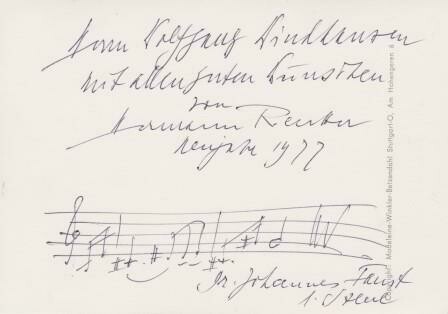 Herrn Wolfgang Windhausen
mit allen guten Wünschen
von
Hermann Reutter
Neujahr 1977
Dr. Johannes Faust
1. Szene
Copyright Madeleine-Winkler-Betzendahl Stuttgart-O, Am Hohengeren 6